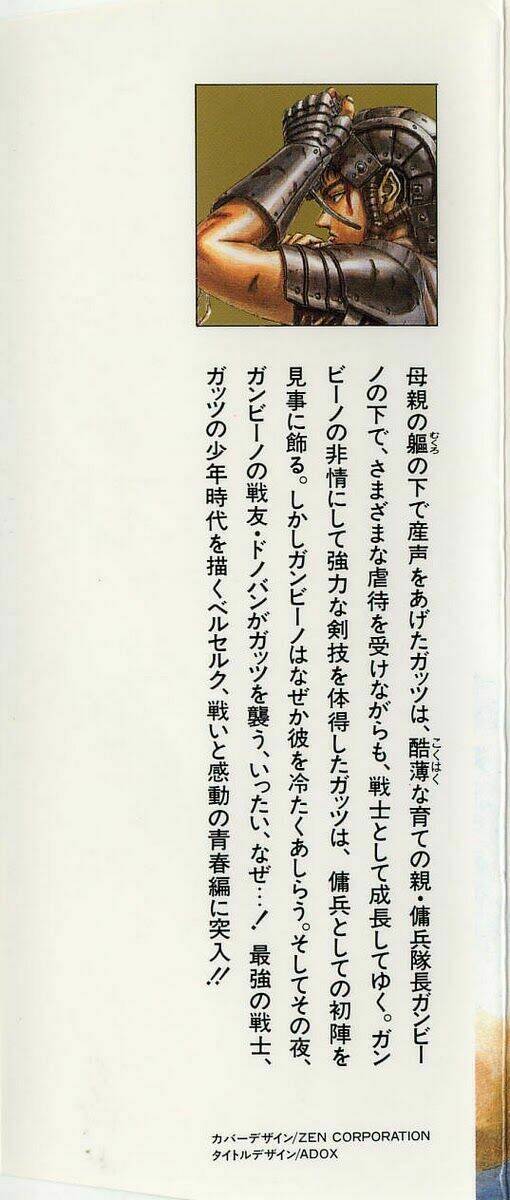 母親の軀の下で産声をあげたガッツは、酷薄な育ての親・傭兵隊長ガンビー
むくろ
こくはく
ノの下で、さまざまな虐待を受けながらも、戦士として成長してゆく。ガン
ビーノの非情にして強力な剣技を体得したガッツは、傭兵としての初陣を
見事に飾る。しかしガンビーノはなぜか彼を冷たくあしらう。そしてその夜、
ガンビーノの戦友・ドノバンがガッツを襲う、いったい、なぜ…！ 最強の戦士、
ガッツの少年時代を描くベルセルク、戦いと感動の青春編に突入!!
カバーデザイン/ZEN CORPORATION
タイトルデザイン/ADOX